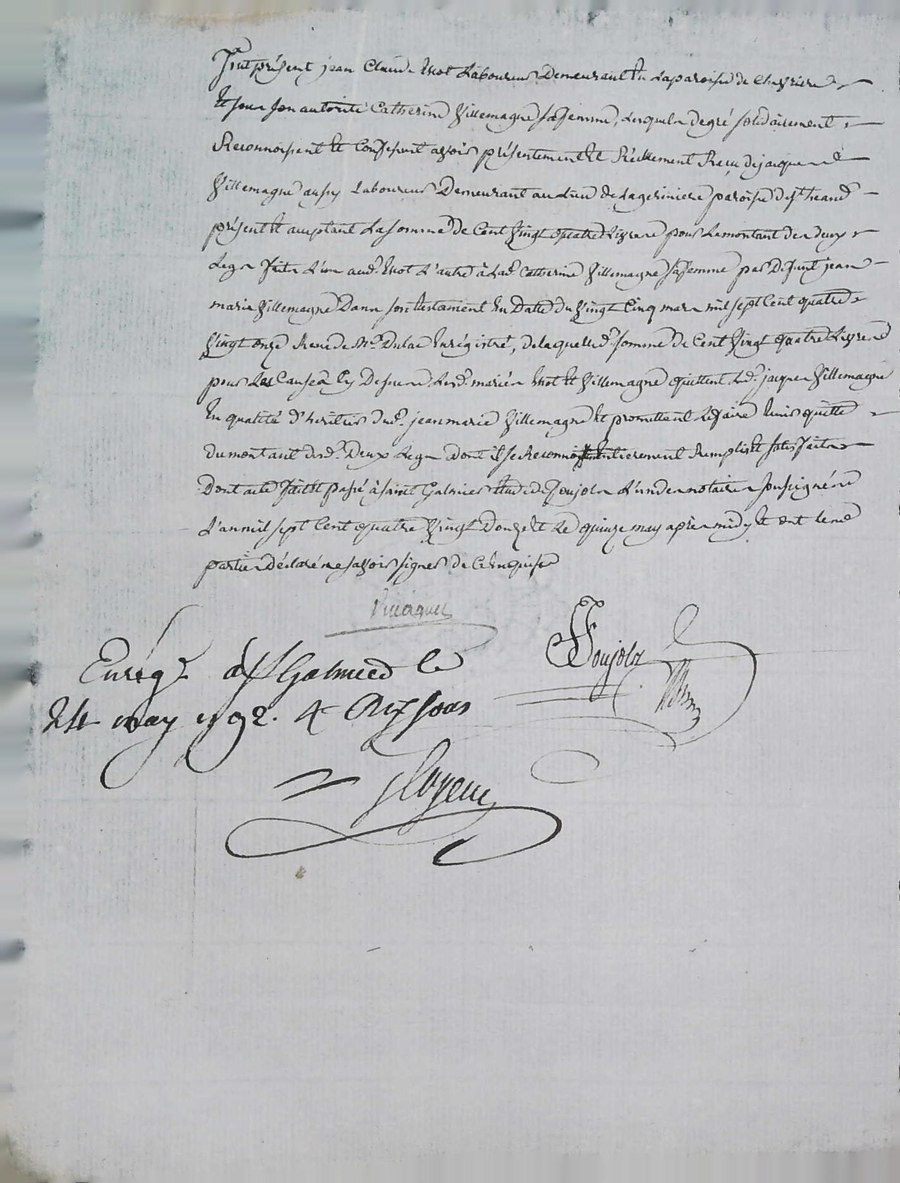 Fut présent jean Claude Viot Laboureur Demeurant En La paroisse de Chevrieres
Et sous son autorité Catherine Villemagne sa femme, Lesquels de gré solidairement
Reconnoissent Et Confessent avoir présentement Et Réellement Reçu de jacques
Villemagne aussy Laboureur Demeurant au Lieu de Lagerinière paroisse de St heand
présent Et acceptant La somme de Cent Vingt quatre Livres pour Le montant des deux
Legs faits L'un aud. Viot L'autre à Lad. Catherine Villemagne sa femme par Defunt jean
marie Villemagne Dans son testament En Datte du Vingt Cinq mars mil sept Cent quatre
Vingt onze Reçu de Me. Dulac Enrégistré, de laquelle d. somme de Cent Vingt quatre Livres
pour Les Causes Cy Dessus Lesd. mariés Viot Et Villemagne quittent Led. jacques Villemagne
En qualité d'héritier dud. jean marie Villemagne Et promettent Le faire tenir quitte
du montant desd. Deux Legs dont ils se Reconnoissent entierement Remplis Et satisfaits
Dont acte fait Et passé à Saint Galmier Etude de Poujolx L'un des notaires soussignés
L'an mil sept Cent quatre Vingt Douze Et Le quinze may après midy Et ont Les
parties déclaré ne sçavoir signer de Ce Enquises
Poujolx
Enregé. à St Galmier le
24 may 1792. 4 Dix sous